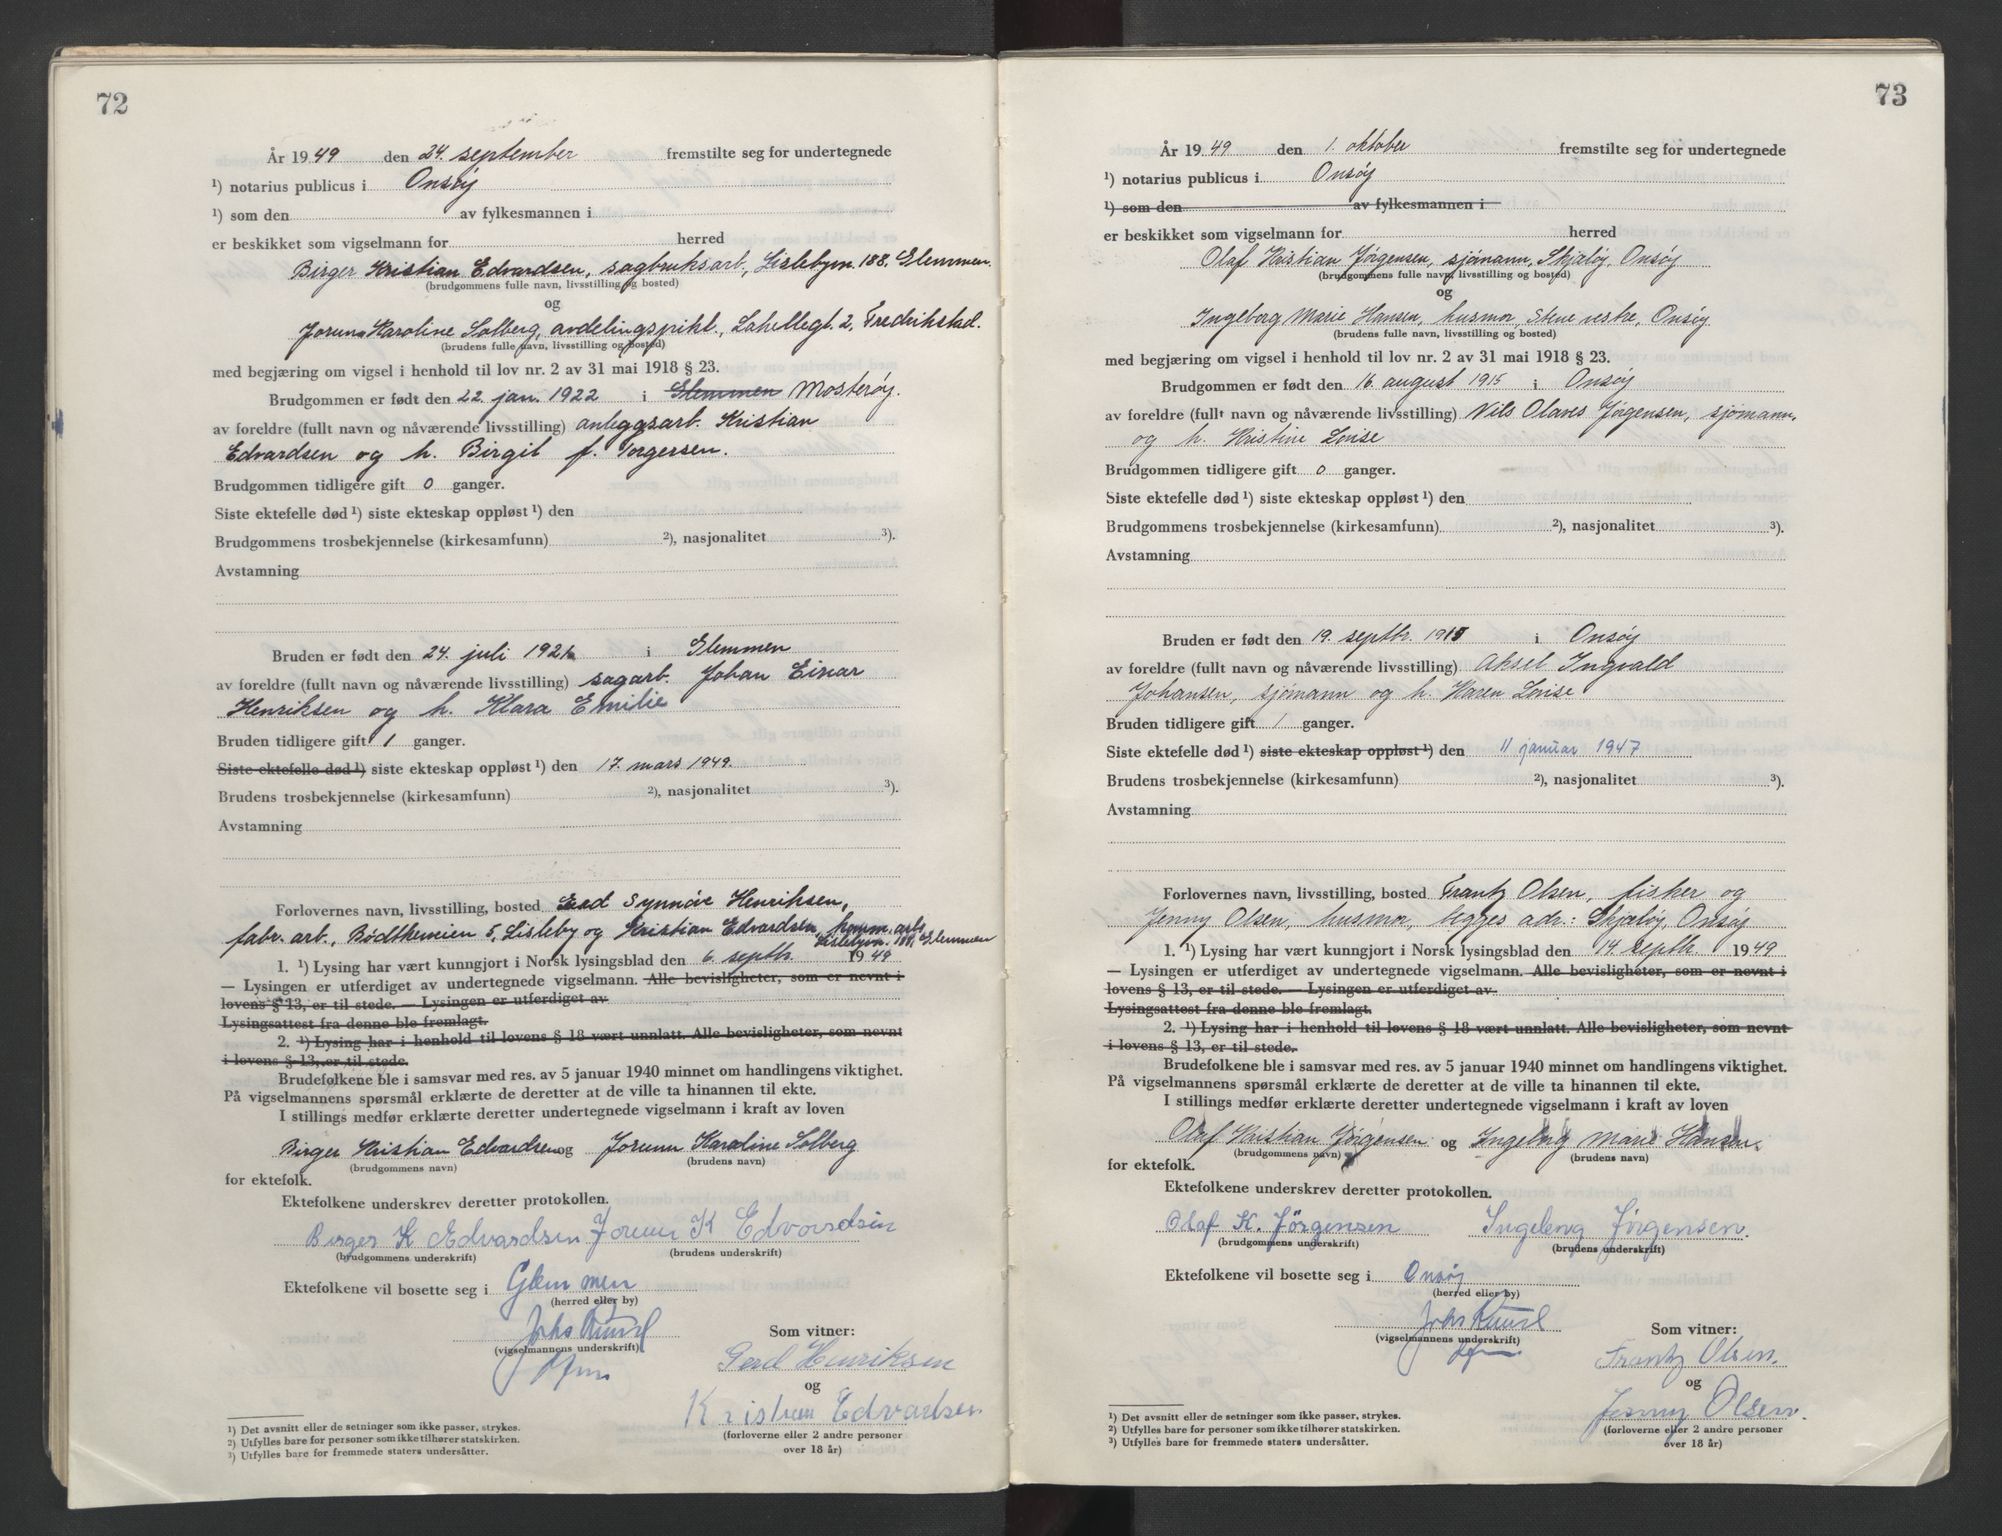 72
År 1949 den 24. september fremstilte seg for undertegnede
¹) notarius publicus i Onsøy
¹) som den av fylkesmannen i
er beskikket som vigselmann for herred
Birger Kristian Edvardsen, sagbruksarb., Lislebyvn. 188, Glemmen.
(brudgommens fulle navn, livsstilling og bosted)
og
Jorunn Karoline Solberg, avdelingspikt., Lahellegt. 2, Fredrikstad.
(brudens fulle navn, livsstilling og bosted)
med begjæring om vigsel i henhold til lov nr. 2 av 31 mai 1918 § 23.
Brudgommen er født den 22. jan. 1922 i Glemmen Mosterøy.
av foreldre (fullt navn og nåværende livsstilling) anleggsarb. Kristian
Edvardsen og h. Birgit f. Torgersen.
Brudgommen tidligere gift 0 ganger.
Siste ektefelle død ¹) siste ekteskap oppløst ¹) den
Brudgommens trosbekjennelse (kirkesamfunn) ²), nasjonalitet ³).
Avstamning
Bruden er født den 24. juli 1921 i Glemmen
av foreldre (fullt navn og nåværende livsstilling) sagarb. Johan Einar
Henriksen og h. Klara Emilie
Bruden tidligere gift 1 ganger.
Siste ektefelle død ¹) siste ekteskap oppløst ¹) den 17. mars 1949.
Brudens trosbekjennelse (kirkesamfunn) ²), nasjonalitet ³).
Avstamning
Forlovernes navn, livsstilling, bosted Gerd Synnøve Henriksen,
fabr. arb., Bødtkerveien 5, Lisleby og Kristian Edvardsen, komm. arb.
Lislebyvn. 188, Glemmen
1. ¹) Lysing har vært kunngjort i Norsk lysingsblad den 6. septbr. 1949
— Lysingen er utferdiget av undertegnede vigselmann. Alle bevisligheter, som er nevnt i
lovens § 13, er til stede. — Lysingen er utferdiget av
Lysingsattest fra denne ble fremlagt.
2. ¹) Lysing har i henhold til lovens § 18 vært unnlatt. Alle bevisligheter, som nevnt
i lovens § 13, er til stede.
Brudefolkene ble i samsvar med res. av 5 januar 1940 minnet om handlingens viktighet.
På vigselmannens spørsmål erklærte de deretter at de ville ta hinannen til ekte.
I stillings medfør erklærte deretter undertegnede vigselmann i kraft av loven
Birger Kristian Edvardsen og Jorunn Karoline Solberg
(brudgommens navn) (brudens navn)
for ektefolk.
Ektefolkene underskrev deretter protokollen.
Birger K Edvardsen Jorunn K Edvardsen
(brudgommens underskrift) (brudens underskrift)
Ektefolkene vil bosette seg i Glemmen
(herred eller by)
Som vitner:
(vigselmannens underskrift)
Gerd Henriksen
og
Kristian Edvardsen.
(forloverne eller 2 andre personer
over 18 år)
¹) Det avsnitt eller de setninger som ikke passer, strykes.
²) Utfylles bare for personer som ikke tilhører statskirken.
³) Utfylles bare for fremmede staters undersåtter.
73
År 1949 den 1. oktober fremstilte seg for undertegnede
¹) notarius publicus i Onsøy
¹) som den av fylkesmannen i
er beskikket som vigselmann for herred
Olaf Kristian Jørgensen, sjømann, Skjæløy, Onsøy
(brudgommens fulle navn, livsstilling og bosted)
og
Ingeborg Marie Hansen, husmor, Stene vestre, Onsøy
(brudens fulle navn, livsstilling og bosted)
med begjæring om vigsel i henhold til lov nr. 2 av 31 mai 1918 § 23.
Brudgommen er født den 16. august 1915 i Onsøy
av foreldre (fullt navn og nåværende livsstilling) Nils Olaves Jørgensen, sjømann,
og h. Kristine Lovise
Brudgommen tidligere gift 0 ganger.
Siste ektefelle død ¹) siste ekteskap oppløst ¹) den
Brudgommens trosbekjennelse (kirkesamfunn) ²), nasjonalitet ³).
Avstamning
Bruden er født den 19. septbr. 1915 i Onsøy
av foreldre (fullt navn og nåværende livsstilling) Aksel Ingvald
Johansen, sjømann og h. Karen Lovise
Bruden tidligere gift 1 ganger.
Siste ektefelle død ¹) siste ekteskap oppløst ¹) den 11 januar 1947
Brudens trosbekjennelse (kirkesamfunn) ²), nasjonalitet ³).
Avstamning
Forlovernes navn, livsstilling, bosted Frantz Olsen, fisker og
Jenny Olsen, husmor, begges adr.: Skjæløy, Onsøy
1. ¹) Lysing har vært kunngjort i Norsk lysingsblad den 14 septbr. 1949
— Lysingen er utferdiget av undertegnede vigselmann. Alle bevisligheter, som er nevnt i
lovens § 13, er til stede. — Lysingen er utferdiget av
Lysingsattest fra denne ble fremlagt.
2. ¹) Lysing har i henhold til lovens § 18 vært unnlatt. Alle bevisligheter, som nevnt
i lovens § 13, er til stede.
Brudefolkene ble i samsvar med res. av 5 januar 1940 minnet om handlingens viktighet.
På vigselmannens spørsmål erklærte de deretter at de ville ta hinannen til ekte.
I stillings medfør erklærte deretter undertegnede vigselmann i kraft av loven
Olaf Kristian Jørgensen og Ingeborg Marie Hansen.
(brudgommens navn) (brudens navn)
for ektefolk.
Ektefolkene underskrev deretter protokollen.
Olaf K. Jörgensen Ingeborg Jørgensen.
(brudgommens underskrift) (brudens underskrift)
Ektefolkene vil bosette seg i Onsøy
(herred eller by)
Som vitner:
(vigselmannens underskrift)
Frantz Olsen.
og
Jenny Olsen.
(forloverne eller 2 andre personer
over 18 år)
¹) Det avsnitt eller de setninger som ikke passer, strykes.
²) Utfylles bare for personer som ikke tilhører statskirken.
³) Utfylles bare for fremmede staters undersåtter.